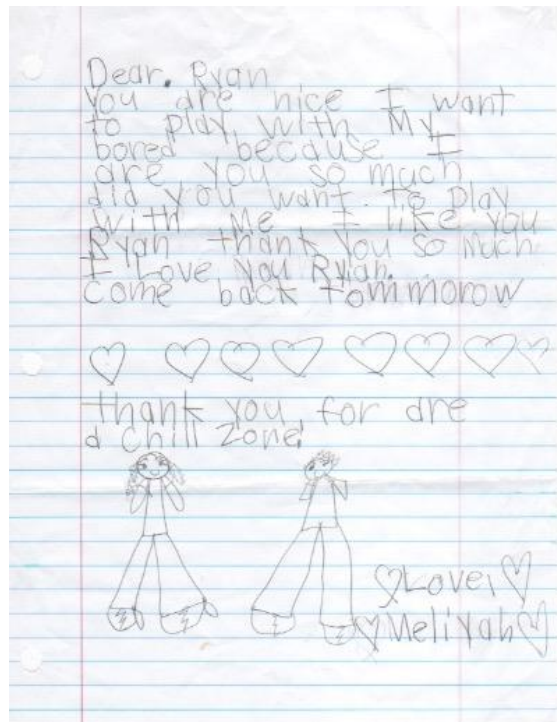 Dear. Ryan
You are nice I want
to play with My
bored because I
are you so much
did you want. to play
with Me I like you
Ryan thank you so much
I Love you Ryan.
Come back tommorow
thank you for are
a Chill Zone!
Love,
Meliyah